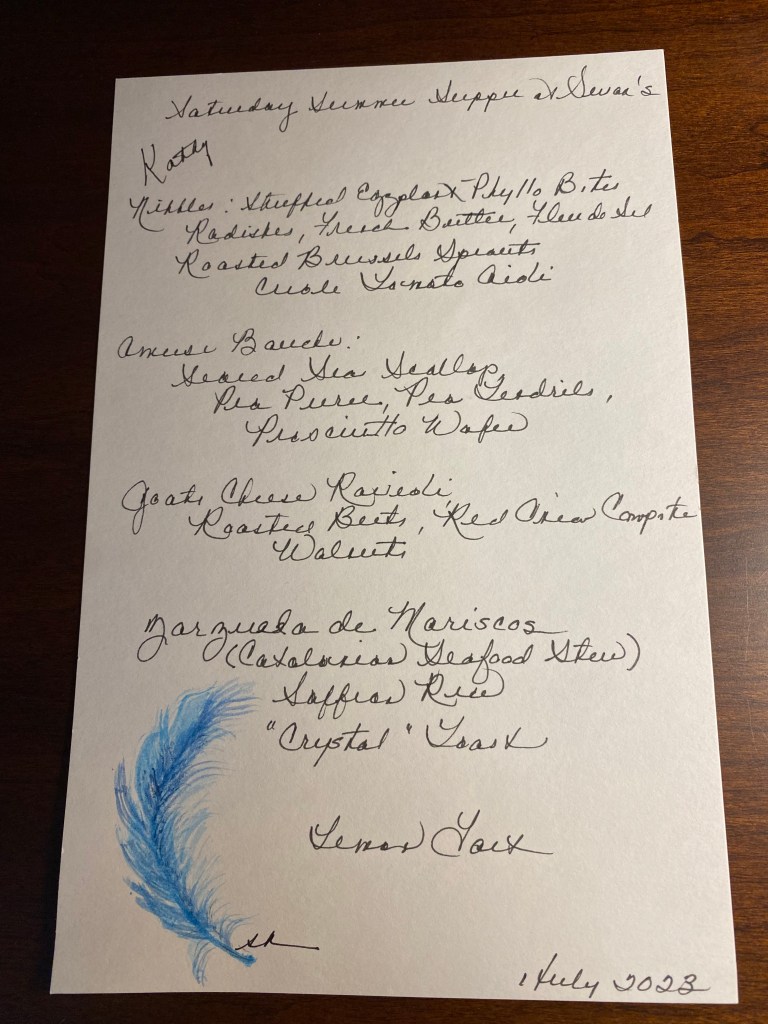 Saturday Summer Supper at Susan's
Kathy
Nibbles: Stuffed Eggplant Phyllo Bites
Radishes, French Butter, Fleur de Sel
Roasted Brussels Sprouts
Creole Tomato Aioli
Amuse Bouche:
Seared Sea Scallop
Pea Puree, Pea Tendrils,
Prosciutto Wafer
Goats Cheese Ravioli,
Roasted Beets, Red Onion Compote
Walnuts
Zarzuela de Mariscos
(Catalunian Seafood Stew)
Saffron Rice
"Crystal" Toast
Lemon Tart
July 2023